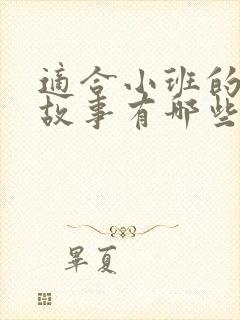 適合小班的
故事有哪些
畢夏